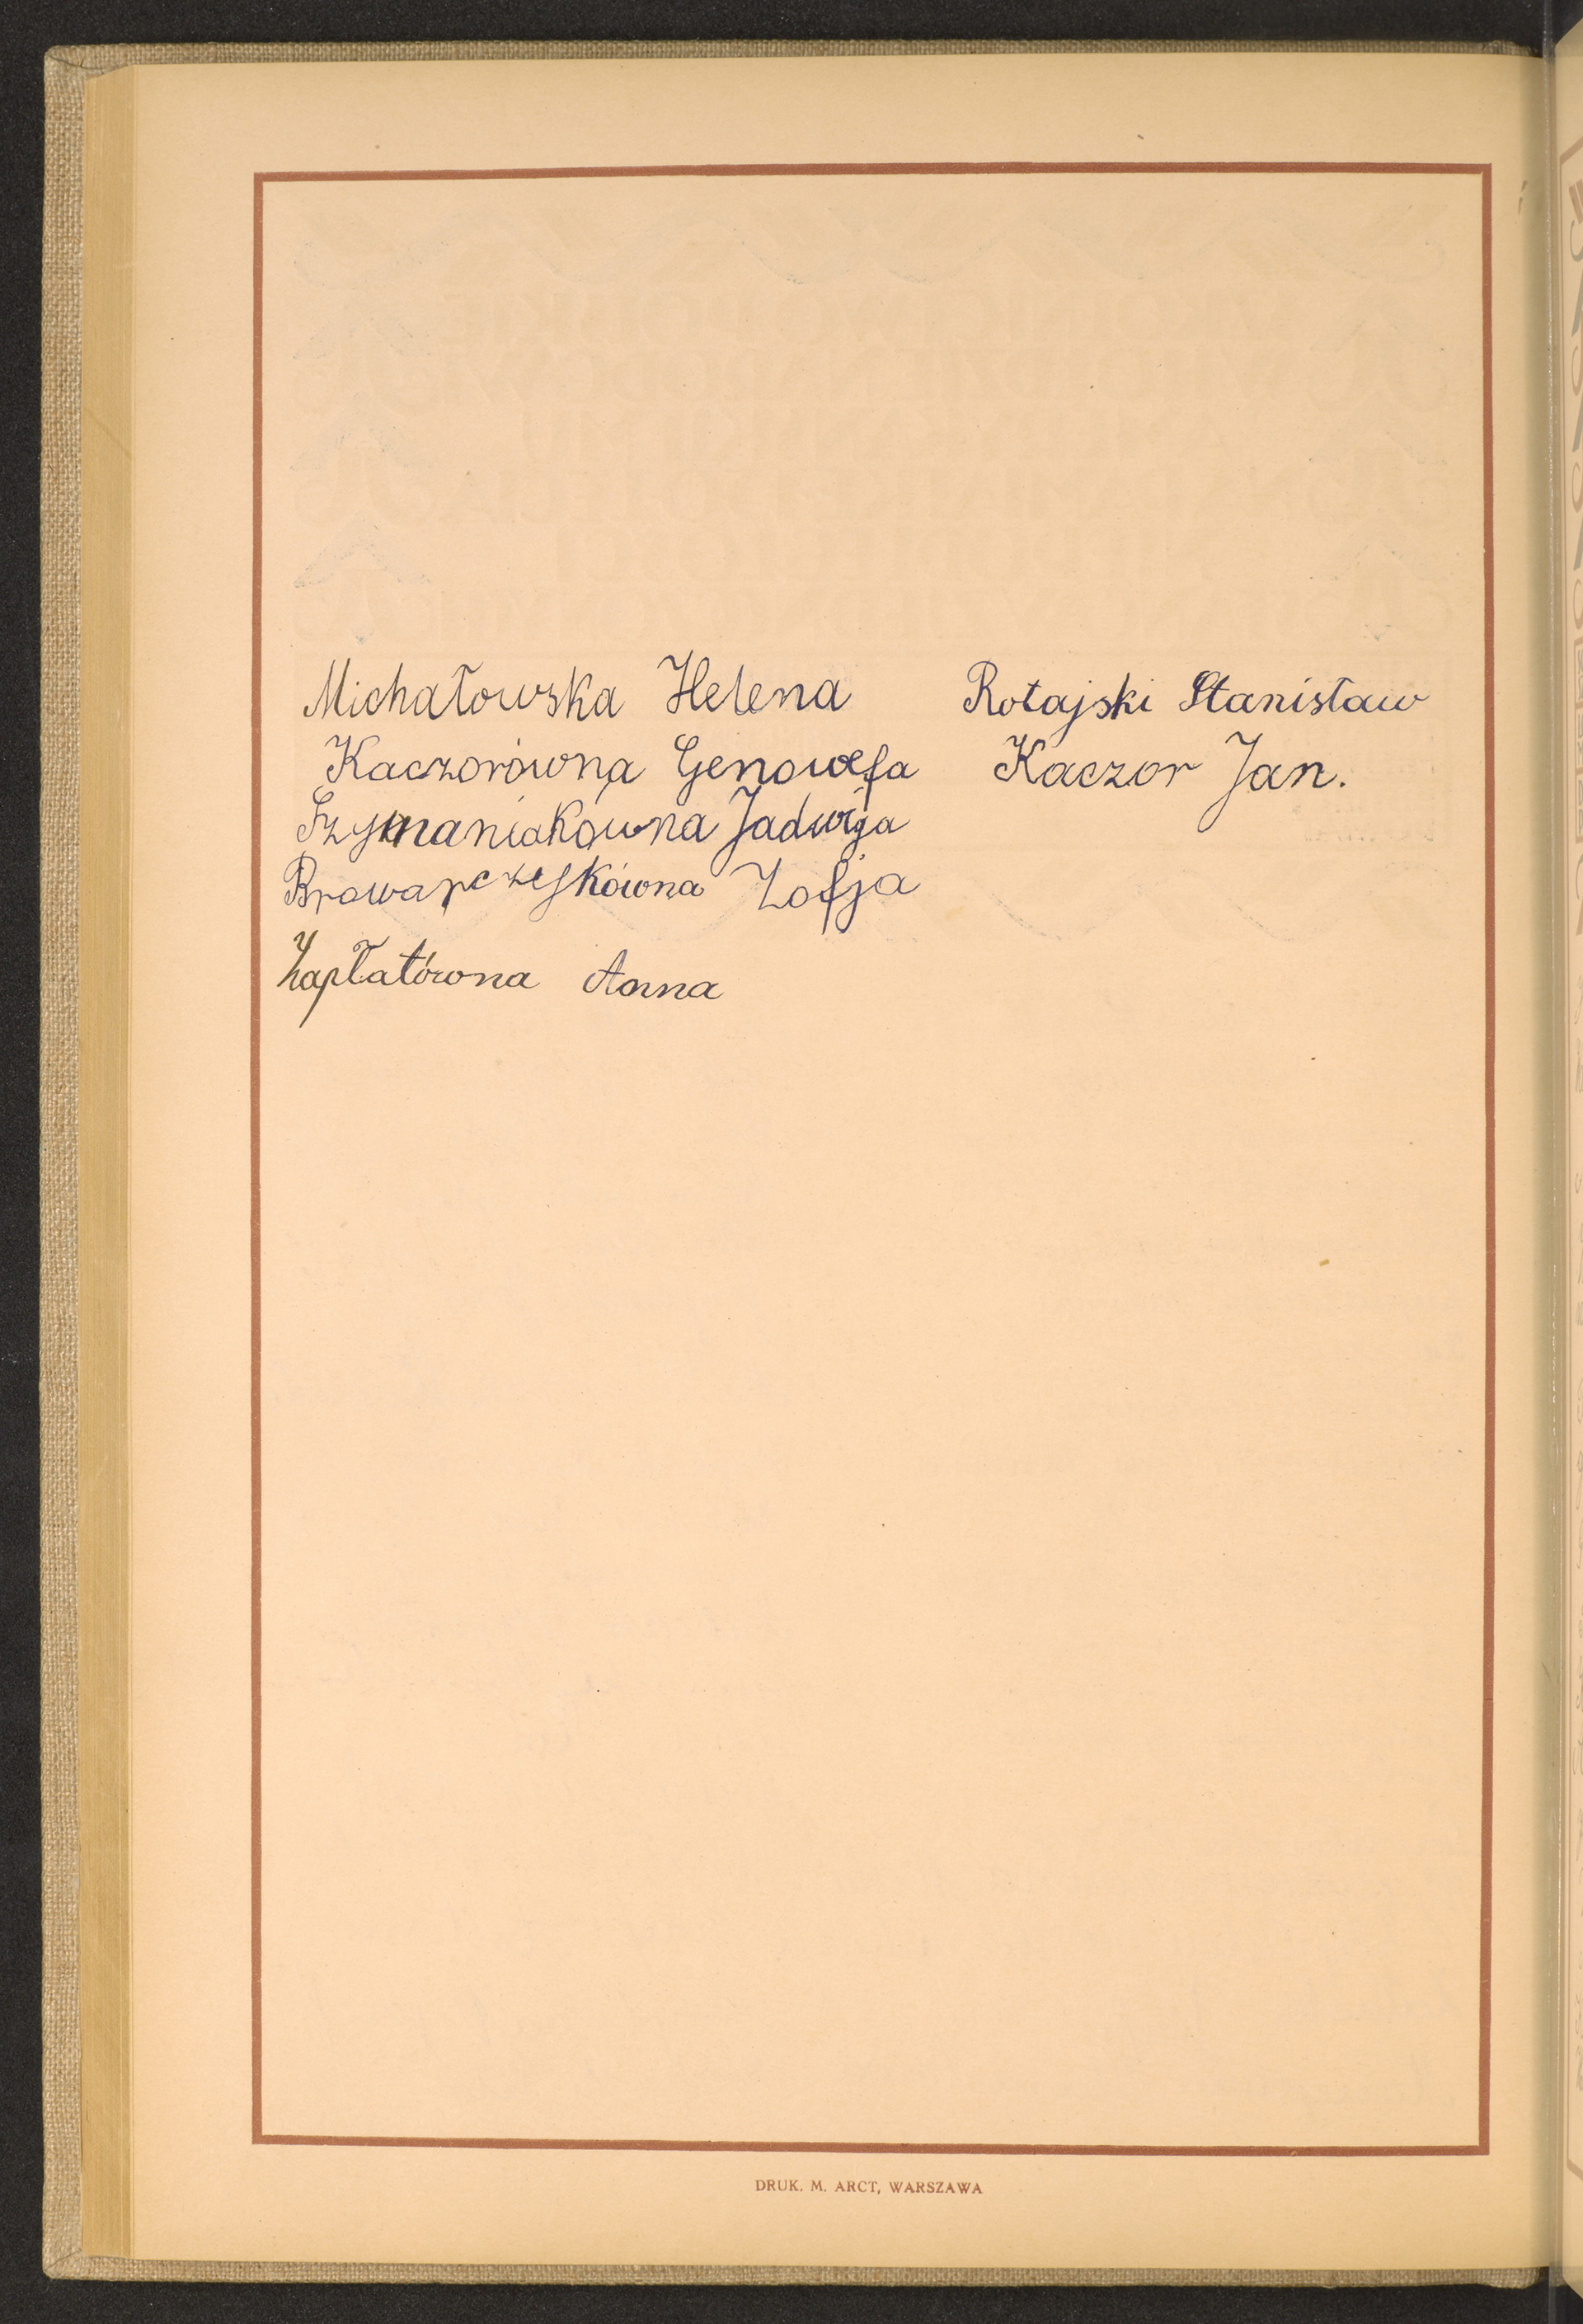 Michałowska Helena
Kaczorówna Genowefa
Szymaniakówna Jadwiga
Browarczykówna Zofja
Zapłatówna Anna
Rotajski Stanisław
Kaczor Jan.
DRUK. M. ARCT, WARSZAWA